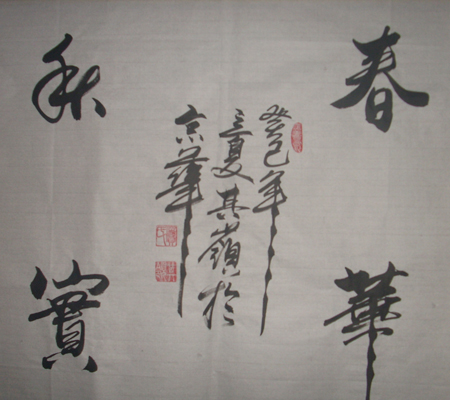 春華
秋實
癸巳年
之夏其嶺於
京華